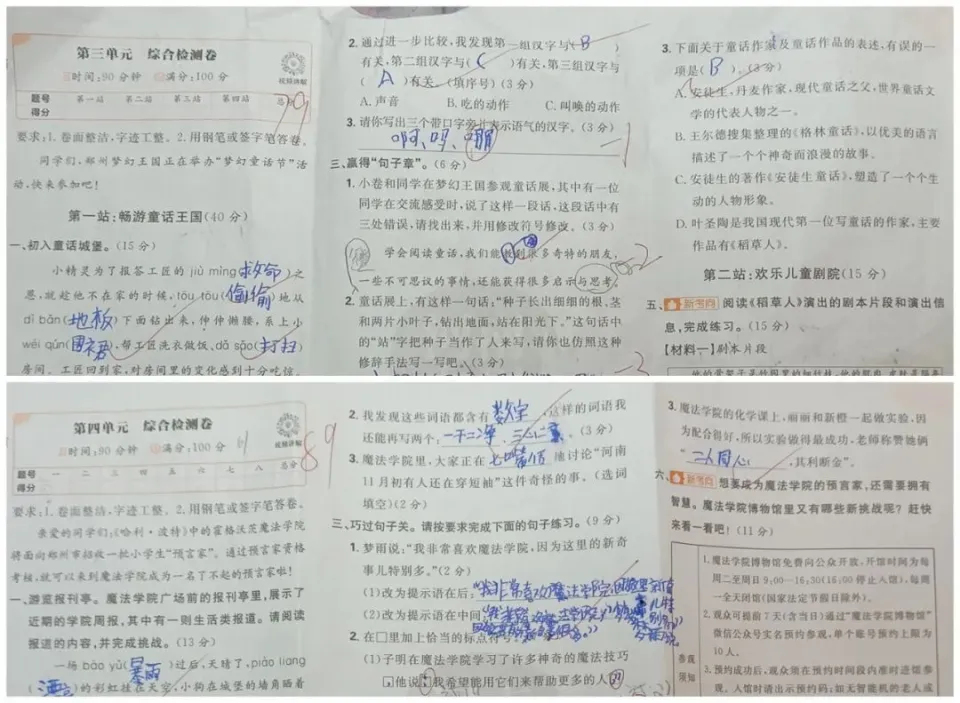 第三单元 综合检测卷
时间:90分钟 满分:100分
视频讲解
题号 第一站 第二站 第三站 第四站 总分
得分
79
要求:1.卷面整洁,字迹工整。2.用钢笔或签字笔答卷。
同学们,郑州梦幻王国正在举办“梦幻童话节”活
动,快来参加吧!
第一站:畅游童话王国(40分)
一、初入童话城堡。(15分)
小精灵为了报答工匠的 jiù mìng(救命)之
恩,就趁他不在家的时候,tōu tōu(偷偷)地从
dì bǎn(地板)下面钻出来,伸伸懒腰,系上小
wéi qún(围裙),帮工匠洗衣做饭、dǎ sǎo(打扫)
房间。工匠回到家,对房间里的变化感到十分吃惊,
2.通过进一步比较,我发现第一组汉字与(B)
有关,第二组汉字与(C)有关,第三组汉字与
(A)有关。(填序号)(3分)
A.声音 B.吃的动作 C.叫唤的动作
3.请你写出三个带口字旁并表示语气的汉字。(3分)
啊、吗、
-1
三、赢得“句子章”。(6分)
1.小卷和同学在梦幻王国参观童话展,其中有一位
同学在交流感受时,说了这样一段话,这段话中有
三处错误,请找出来,并用修改符号修改。(3分)
学会阅读童话,我们能 到很多奇特的朋友,
一些不可思议的事情,还能获得很多启示与思考。
-2
2.童话展上,有这样一句话:“种子长出细细的根、茎
和两片小叶子,钻出地面,站在阳光下。”这句话中
的“站”字把种子当作了人来写,请你也仿照这种
修辞手法写一写吧。(3分)
-3
3.下面关于童话作家及童话作品的表述,有误的一
项是(B)。(3分)
A.安徒生,丹麦作家,现代童话之父,世界童话文
学的代表人物之一。
B.王尔德搜集整理的《格林童话》,以优美的语言
描述了一个个神奇而浪漫的故事。
C.安徒生的著作《安徒生童话》,塑造了一个个生
动的人物形象。
D.叶圣陶是我国现代第一位写童话的作家,主要
作品有《稻草人》。
第二站:欢乐儿童剧院(15分)
五、新考向 阅读《稻草人》演出的剧本片段和演出信
息,完成练习。(15分)
【材料一】剧本片段
第四单元 综合检测卷
时间:90分钟 满分:100分
视频讲解
89
题号 一 二 三 四 五 六 七 八 总分
得分
要求:1.卷面整洁,字迹工整。2.用钢笔或签字笔答卷。
亲爱的同学们:《哈利·波特》中的霍格沃茨魔法学院
将面向郑州市招收一批小学生“预言家”。通过预言家资格
考核,就可以来到魔法学院成为一名了不起的预言家啦!
一、游览报刊亭。魔法学院广场前的报刊亭里,展示了
近期的学院周报,其中有一则生活类报道。请阅读
报道的内容,并完成挑战。(13分)
一场 bào yǔ(暴雨)过后,天晴了,piào liang
的彩虹挂在天空,小狗在城堡的墙角晒着
我发现这些词语都含有数字,这样的词语我
还能再写两个:一干二净、三心二意。(3分)
3.魔法学院里,大家正在七嘴八舌地讨论“河南
11月初有人还在穿短袖”这件奇怪的事。(选词
填空)(2分)
三、巧过句子关。请按要求完成下面的句子练习。(9分)
1.梦雨说:“我非常喜欢魔法学院,因为这里的新奇
事儿特别多。”(2分)
(1)改为提示语在后:“我非常喜欢魔法学院,因为这里的新奇
(2)改为提示语在中间:
2.在□里加上恰当的标点符号。
(1)子明在魔法学院学习了许多神奇的魔法技巧
他说 我希望能用它们来帮助更多的人
3.魔法学院的化学课上,丽丽和新橙一起做实验,因
为配合得好,所以实验做得最成功,老师称赞她俩
“二人同心,其利断金”。
六、新考向 想要成为魔法学院的预言家,还需要拥有
智慧。魔法学院博物馆里又有哪些新挑战呢?赶快
来看一看吧!(11分)
参观须知
1.魔法学院博物馆免费向公众开放,开馆时间为每
周二至周日9:00—16:30(16:00停止入馆),每周
一全天闭馆(国家法定节假日除外)。
2.观众可提前7天(含当日)通过“魔法学院博物馆”
微信公众号实名预约参观,单个账号预约上限为
10人。
3.预约成功后,观众须在预约时间段内准时进馆参
观。入馆时请出示预约码;如无智能机的老人或